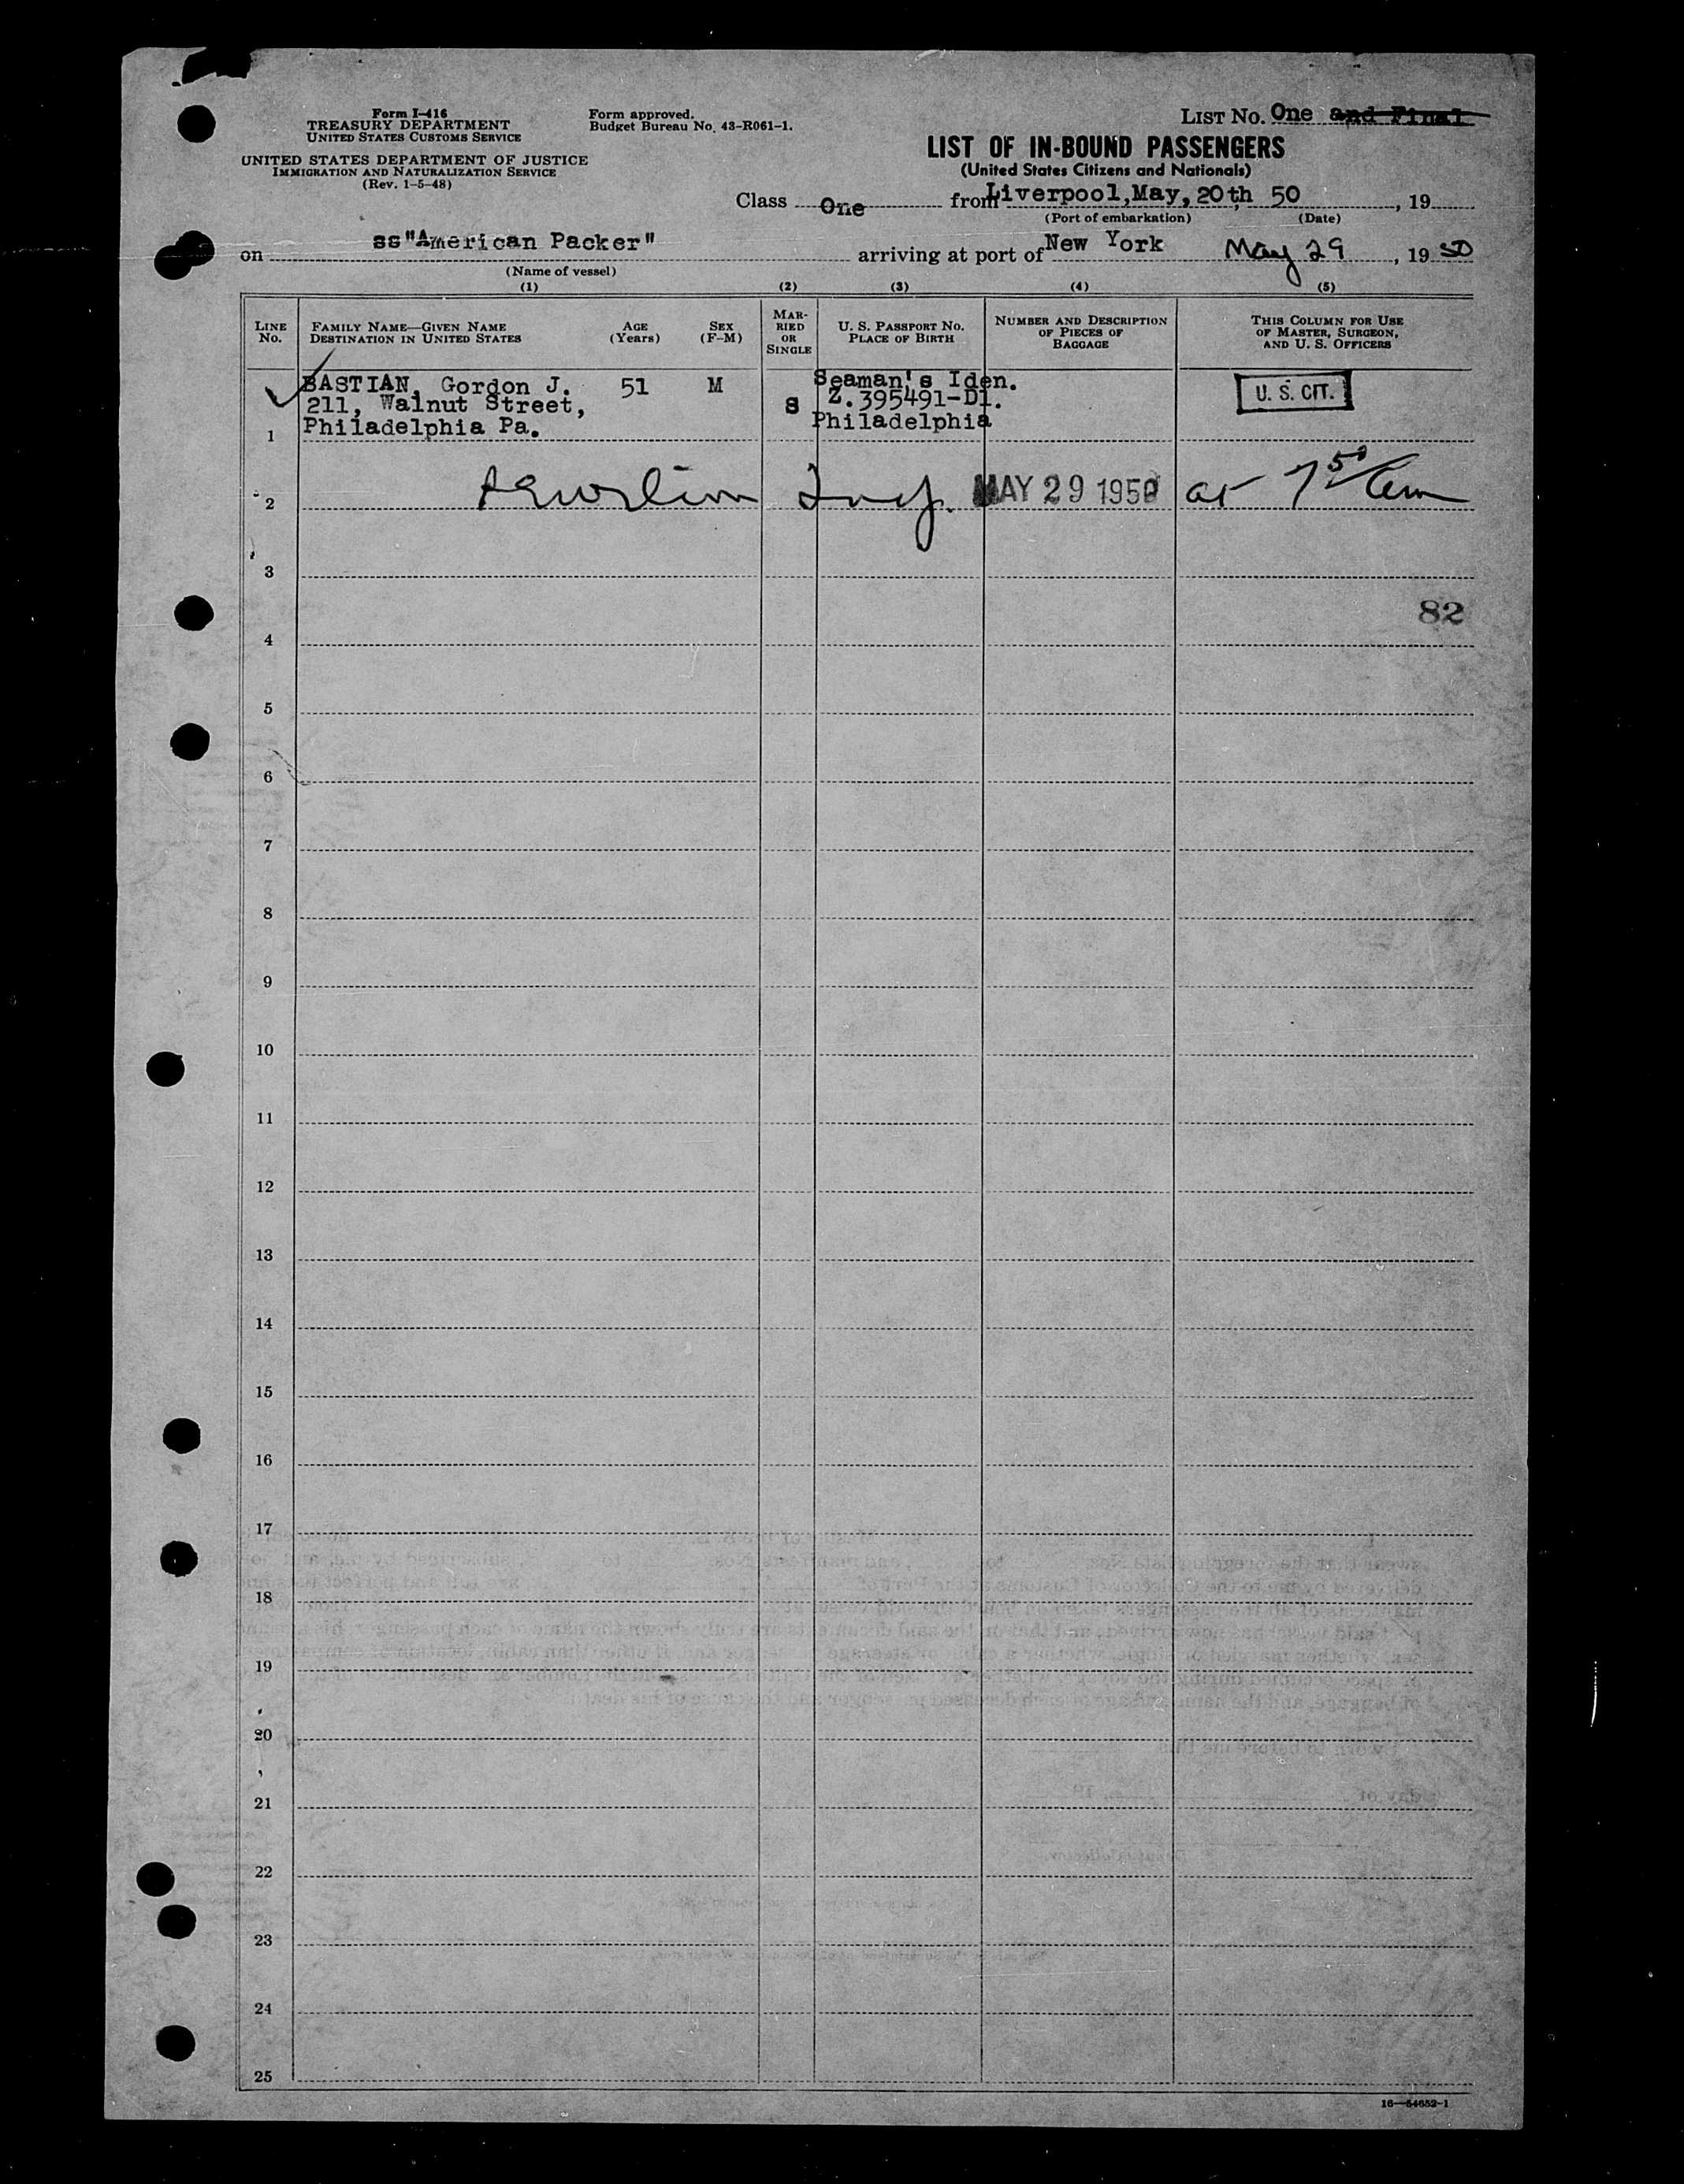 Form I-416
TREASURY DEPARTMENT
UNITED STATES CUSTOMS SERVICE
UNITED STATES DEPARTMENT OF JUSTICE
IMMIGRATION AND NATURALIZATION SERVICE
(Rev. 1-5-48)
Form approved.
Budget Bureau No. 43-R061-1.
LIST No. One and Final
LIST OF IN-BOUND PASSENGERS
(United States Citizens and Nationals)
Class One from Liverpool, May, 20th 50, 19
(Port of embarkation) (Date)
on ss"American Packer" arriving at port of New York May 29, 19 50
(Name of vessel)
(1) (2) (3) (4) (5)
LINE No.
FAMILY NAME—GIVEN NAME
DESTINATION IN UNITED STATES
AGE (Years)
SEX (F-M)
MARRIED OR SINGLE
U. S. PASSPORT No.
PLACE OF BIRTH
NUMBER AND DESCRIPTION
OF PIECES OF
BAGGAGE
THIS COLUMN FOR USE
OF MASTER, SURGEON,
AND U. S. OFFICERS
BASTIAN, Gordon J. 51 M Seaman's Iden. U. S. CIT.
211, Walnut Street, S Z.395491-D1.
1 Philadelphia Pa. Philadelphia
2 MAY 29 1950 at 7 50 am
3
82
4
5
6
7
8
9
10
11
12
13
14
15
16
17
18
19
20
21
22
23
24
25
16—54652-1